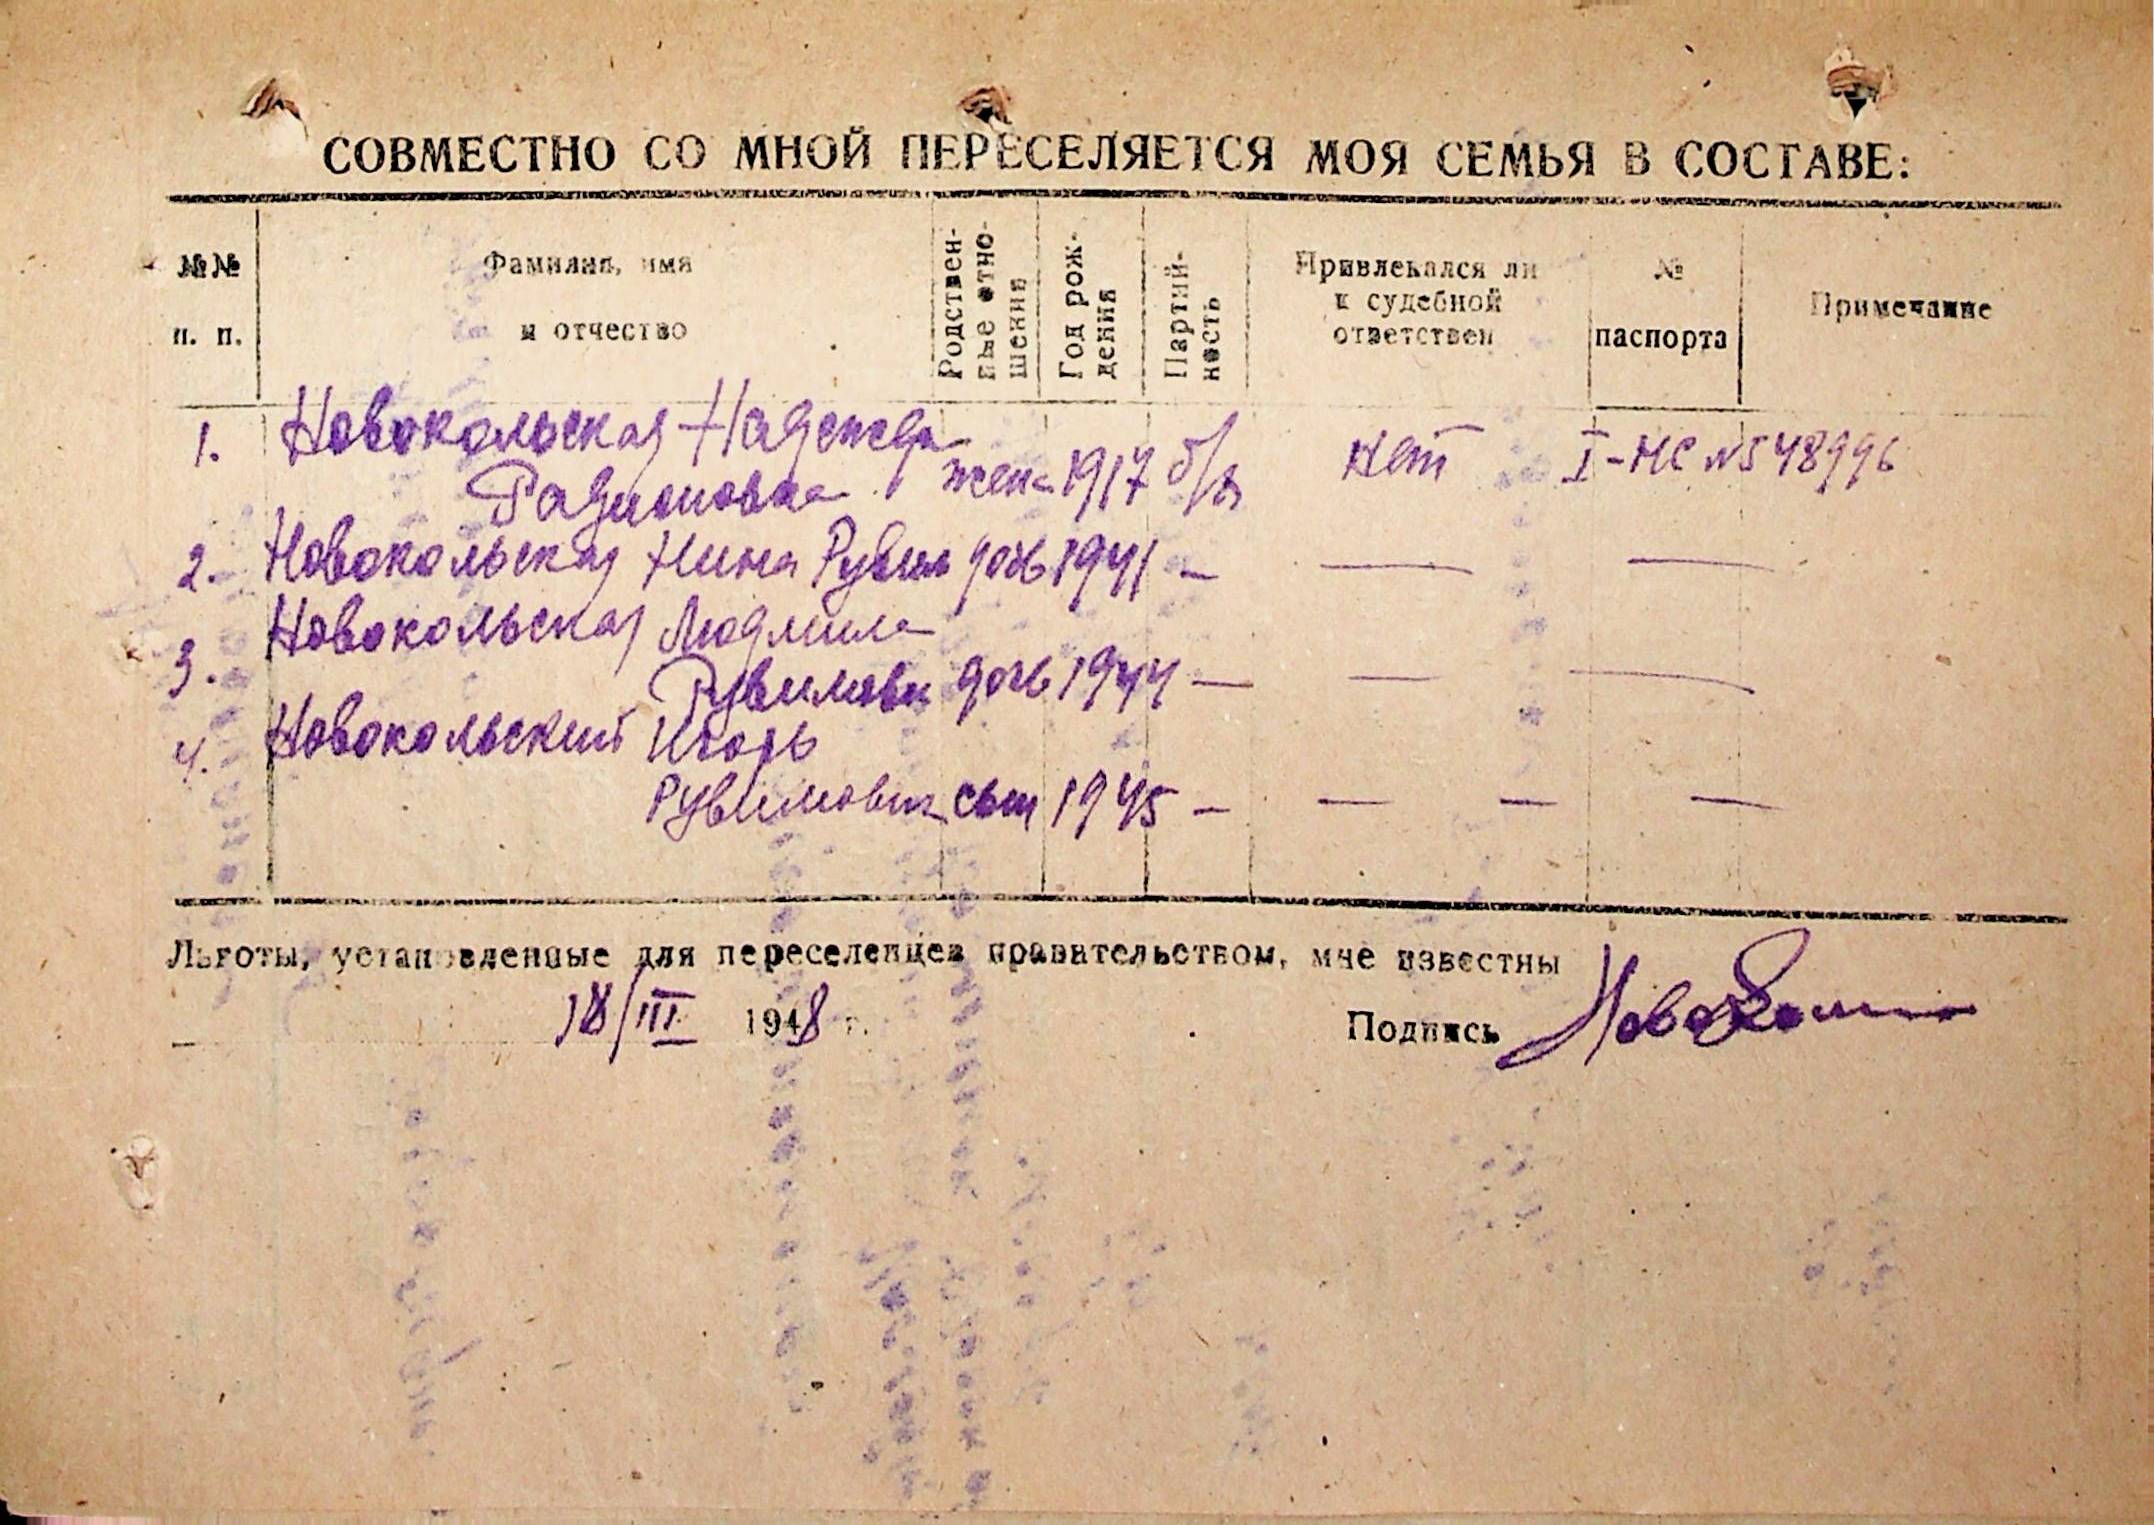 СОВМЕСТНО СО МНОЙ ПЕРЕСЕЛЯЕТСЯ МОЯ СЕМЬЯ В СОСТАВЕ:
№№ п. п. Фамилия, имя и отчество Родственные отношения Год рождения Партийность Привлекался ли к судебной ответствен № паспорта Примечание
1. Новокольская Надежда
Радионовна жена 1917 б/п нет I-НС №548996
2. Новокольская Нина Рувим дочь 1941 — — —
3. Новокольская Людмила
Рувимовн дочь 1944 — — —
4. Новокольский Игорь
Рувимович сын 1945 — — — —
Льготы, установленные для переселенцев правительством, мне известны
18/III 1948 г. Подпись Новоколь